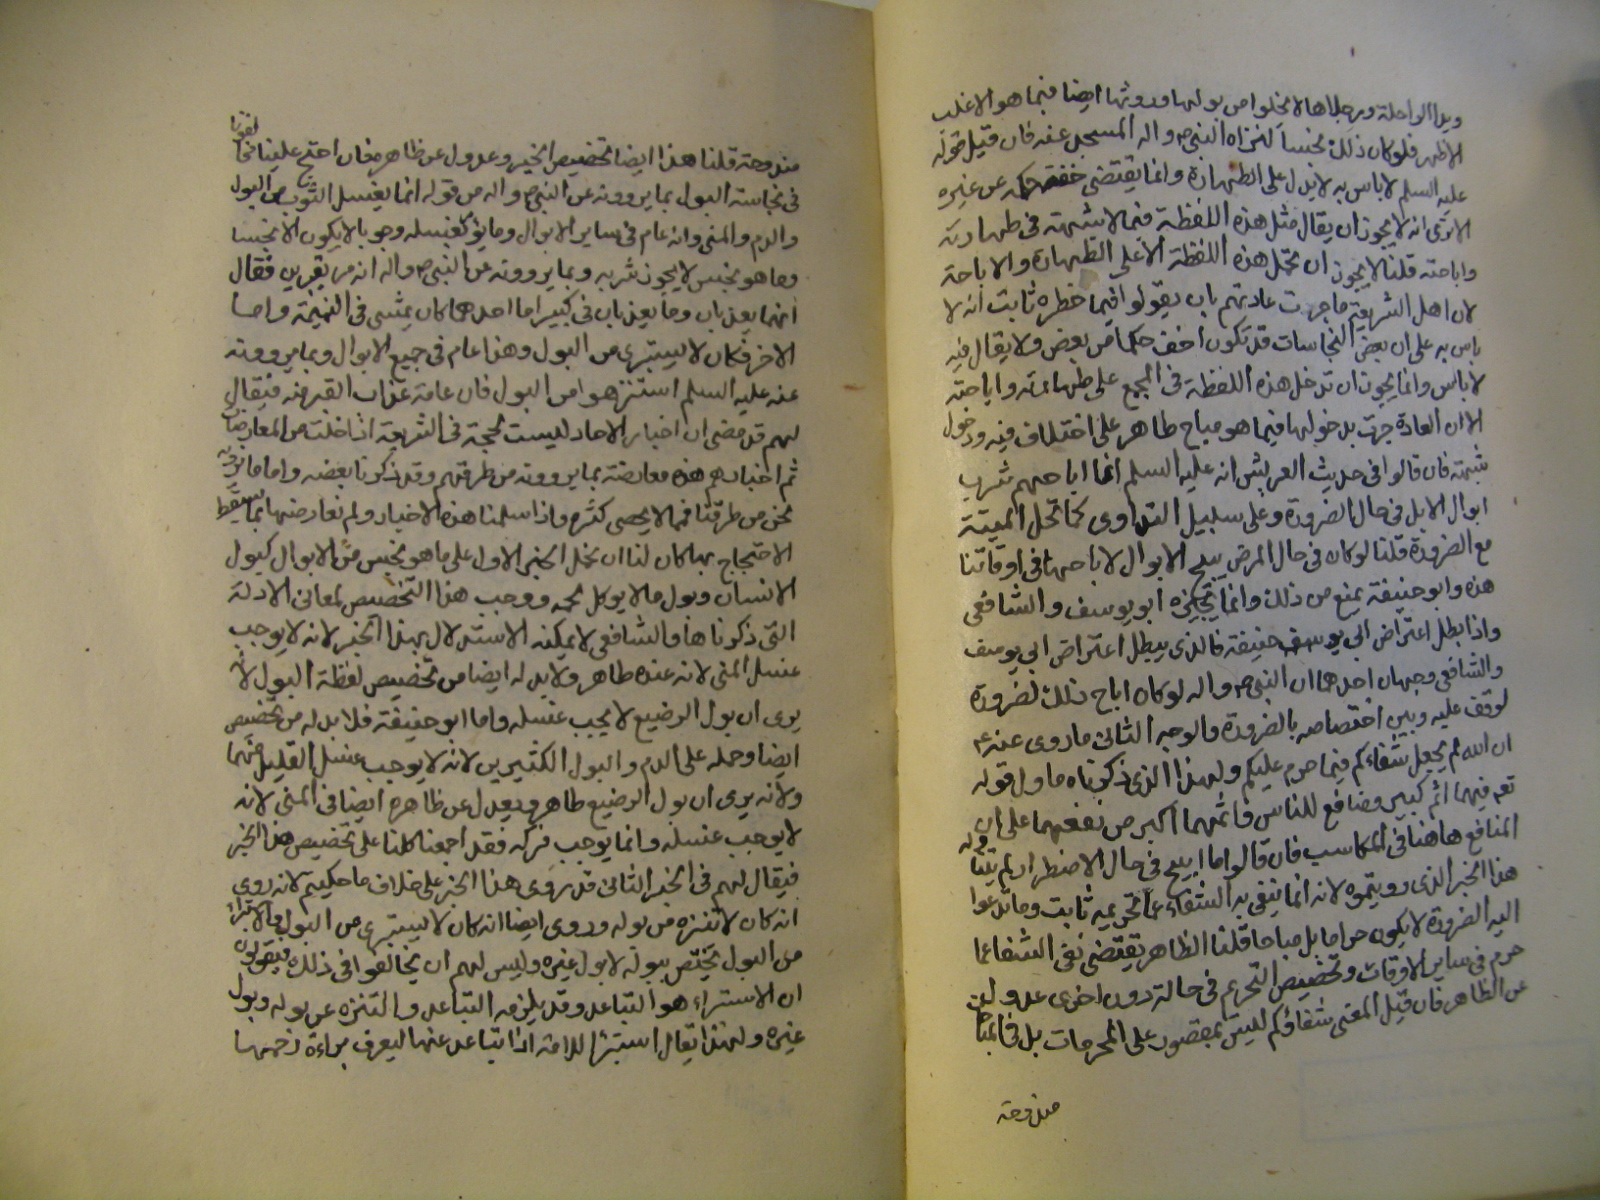 ويدا الراحلة ورجلاها لا يخلوا من بولها وروثها ايضا فيما هو الاغلب
الاظهر فلو كان ذلك نجسا لنزه النبي ص واله المسجد عنه فان قيل قوله
عليه السلم لا باس به لا يدل على الطهارة وانما يقتضي خفة حكمه عن غيره
الا ترى انه لا يجوز ان يقال مثل هذه اللفظة فيما لا شبهة في طهارته
واباحته قلنا لا يجوز ان تحمل هذه اللفظة الا على الطهارة والاباحة
لان اهل الشريعة ما جرت عادتهم بان يقولوا فيما حظره ثابت انه لا
باس به على ان بعض النجاسات قد تكون اخف حكما من بعض ولا يقال فيه
لا باس وانما يجوز ان تدخل هذه اللفظة في المجمع على طهارته واباحته
الا ان العادة جرت بدخولها فيما هو مباح طاهر على اختلاف فيه ودخول
شبهة فان قالوا في حديث العرنيين انه عليه السلم انما اباحهم شرب
ابوال الابل في حال الضرورة وعلى سبيل التداوى كما تحل الميتة
مع الضرورة قلنا لو كان في حال المرض يبيح الابوال لاباحها في اوقاتنا
هذه وابو حنيفة يمنع من ذلك وانما يجيزه ابو يوسف والشافعي
واذا بطل اعتراض ابي حنيفة فالذي يبطل اعتراض ابي يوسف
والشافعي وجهان احدهما ان النبي ص واله لو كان اباح ذلك لضرورة
لوقف عليه وبين اختصاصه بالضرورة والوجه الثاني ما روى عنه ع
ان الله لم يجعل شفاءكم فيما حرم عليكم ولهذا الذي ذكرناه ما ول قوله
تعه فيهما اثم كبير ومنافع للناس واثمهما اكبر من نفعهما على ان
المنافع هاهنا في المكاسب فان قالوا ما ابيح في حال الاضطرار لم يتناوله
هذا الخبر الذي رويتموه لانه انما ينفى به الشفاء عما تحريمه ثابت وما تدعوا
اليه الضرورة لا يكون حراما بل مباحا قلنا الظاهر يقتضي نفي الشفا عما
حرم في ساير الاوقات وتخصيص التحريم في حالة دون اخرى عدول
عن الظاهر فان قيل المعنى شفاؤكم ليس بمقصور على المحرمات بل في المباح
مندوحة
مندوحة قلنا هذا ايضا تخصيص الخبر وعدول عن ظاهره فان احتج علينا مخالفونا
في نجاسة البول بما يروونه عن النبي ص واله من قوله انما يغسل الثوب من البول
والدم والمني وانه عام في ساير الابوال وما يؤكد غسله وجوبا لا يكون الا نجسا
وما هو نجس لا يجوز شربه وبما يروونه عن النبي ص واله انه مر بقبرين فقال
انهما يعذبان وما يعذبان في كبير اما احدهما كان يمشي في النميمة واما
الاخر فكان لا يستبرى من البول وهذا عام في جميع الابوال وبما يروونه
عنه عليه السلم استنزهوا من البول فان عامة عذاب القبر منه فيقال
لهم قد مضى ان اخبار الاحاد ليست بحجة في الشريعة اذا خلت من المعارضات
ثم اخبارهم هذه معارضة بما يروونه من طرقهم وقد ذكرنا بعضه واما ما نرويه
نحن من طرقنا فما لا يحصى كثرة واذا سلمنا هذه الاخبار ولم نعارضها بما يسقط
الاحتجاج بها كان لنا ان نحمل الخبر الاول على ما هو نجس من الابوال كبول
الانسان وبول ما لا يوكل لحمه ووجب هذا التخصيص لمعاني الادلة
التي ذكرناها والشافعي لا يمكنه الاستدلال بهذا الخبر لانه لا يوجب
غسل المني لانه عنده طاهر ولا بد له ايضا من تخصيص لفظة البول لانه
يرى ان بول الرضيع لا يجب غسله واما ابو حنيفة فلا بد له من تخصيص
ايضا وحمله على الدم والبول الكثيرين لانه لا يوجب غسل القليل منهما
ولانه يرى ان بول الرضيع طاهر ويعدل عن ظاهره ايضا في المني لانه
لا يوجب غسله وانما يوجب فركه فقد اجمعنا كلنا على تخصيص هذا الخبر
فيقال لهم في الخبر الثاني قد روى هذا الخبر على خلاف ما حكيتم لانه روى
انه كان لا يتنزه من بوله وروى ايضا انه كان لا يستبرى من البول والاستبراء
من البول يختص ببوله لا بول غيره وليس لهم ان يخالفوا في ذلك فيقولون
ان الاستبراء هو التباعد وقد يلزمه التباعد والتنزه عن بوله وبول
غيره ولهذا يقال استبرا للامة اذا تباعد عنها ليعرف براءة رحمها